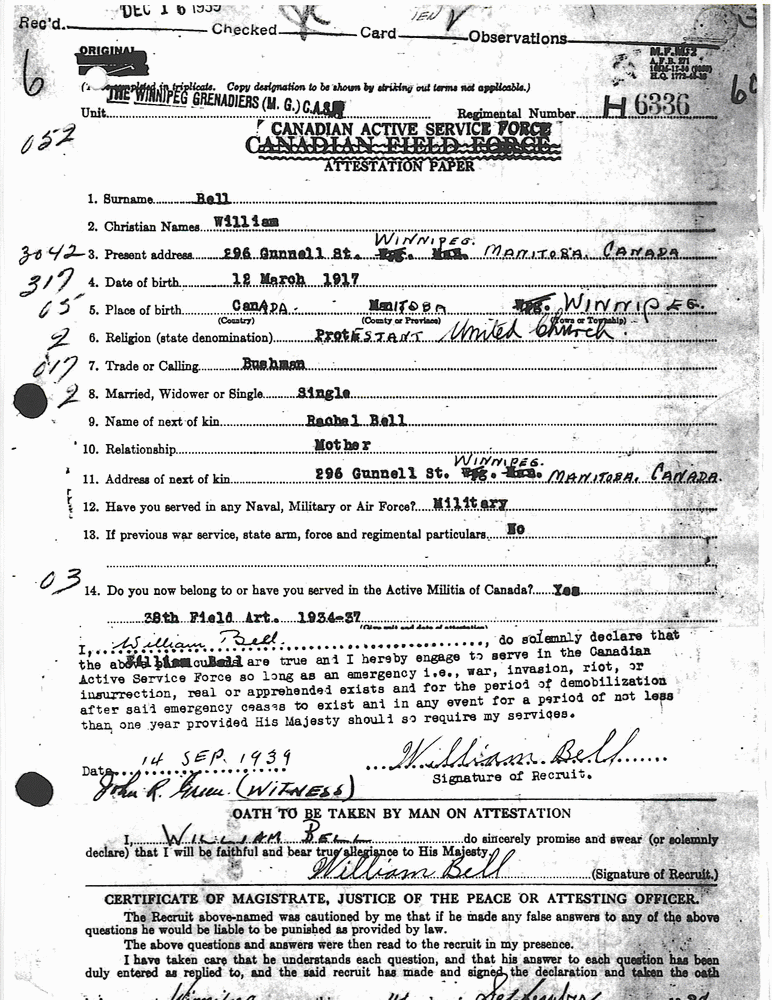 DEC 16 1939
Rec'd. Checked Card Observations
ORIGINAL
M.F.M. 2
A.F.B. 271
H.Q. 1772-45-15
6
(To be completed in triplicate. Copy designation to be shown by striking out terms not applicable.)
THE WINNIPEG GRENADIERS (M. G.) C.A.S.F.
Unit Regimental Number H 6336
052
CANADIAN ACTIVE SERVICE FORCE
CANADIAN FIELD FORCE
ATTESTATION PAPER
1. Surname Bell
2. Christian Names William
3042 3. Present address 296 Gunnell St. Wpg. Man. WINNIPEG. MANITOBA. CANADA
317 4. Date of birth 12 March 1917
05 5. Place of birth CANADA. MANITOBA Wpg. WINNIPEG.
(Country) (County or Province) (Town or Township)
2 6. Religion (state denomination) PROTESTANT United Church.
017 7. Trade or Calling Bushman
2 8. Married, Widower or Single Single
9. Name of next of kin Rachel Bell
10. Relationship Mother
11. Address of next of kin 296 Gunnell St. Wpg. Man. WINNIPEG. MANITOBA. CANADA.
12. Have you served in any Naval, Military or Air Force? Military
13. If previous war service, state arm, force and regimental particulars. No
03 14. Do you now belong to or have you served in the Active Militia of Canada? Yes
38th Field Art. 1934-37
(Give unit and date of attestation)
I, William Bell. , do solemnly declare that
the above particulars are true and I hereby engage to serve in the Canadian
Active Service Force so long as an emergency i.e., war, invasion, riot, or
insurrection, real or apprehended exists and for the period of demobilization
after said emergency ceases to exist and in any event for a period of not less
than one year provided His Majesty should so require my services.
Date 14 SEP. 1939 William Bell
Signature of Recruit.
John R. Green (WITNESS)
OATH TO BE TAKEN BY MAN ON ATTESTATION
I, WILLIAM BELL do sincerely promise and swear (or solemnly
declare) that I will be faithful and bear true allegiance to His Majesty.
William Bell (Signature of Recruit.)
CERTIFICATE OF MAGISTRATE, JUSTICE OF THE PEACE OR ATTESTING OFFICER.
The Recruit above-named was cautioned by me that if he made any false answers to any of the above
questions he would be liable to be punished as provided by law.
The above questions and answers were then read to the recruit in my presence.
I have taken care that he understands each question, and that his answer to each question has been
duly entered as replied to, and the said recruit has made and signed the declaration and taken the oath
Winnipeg September